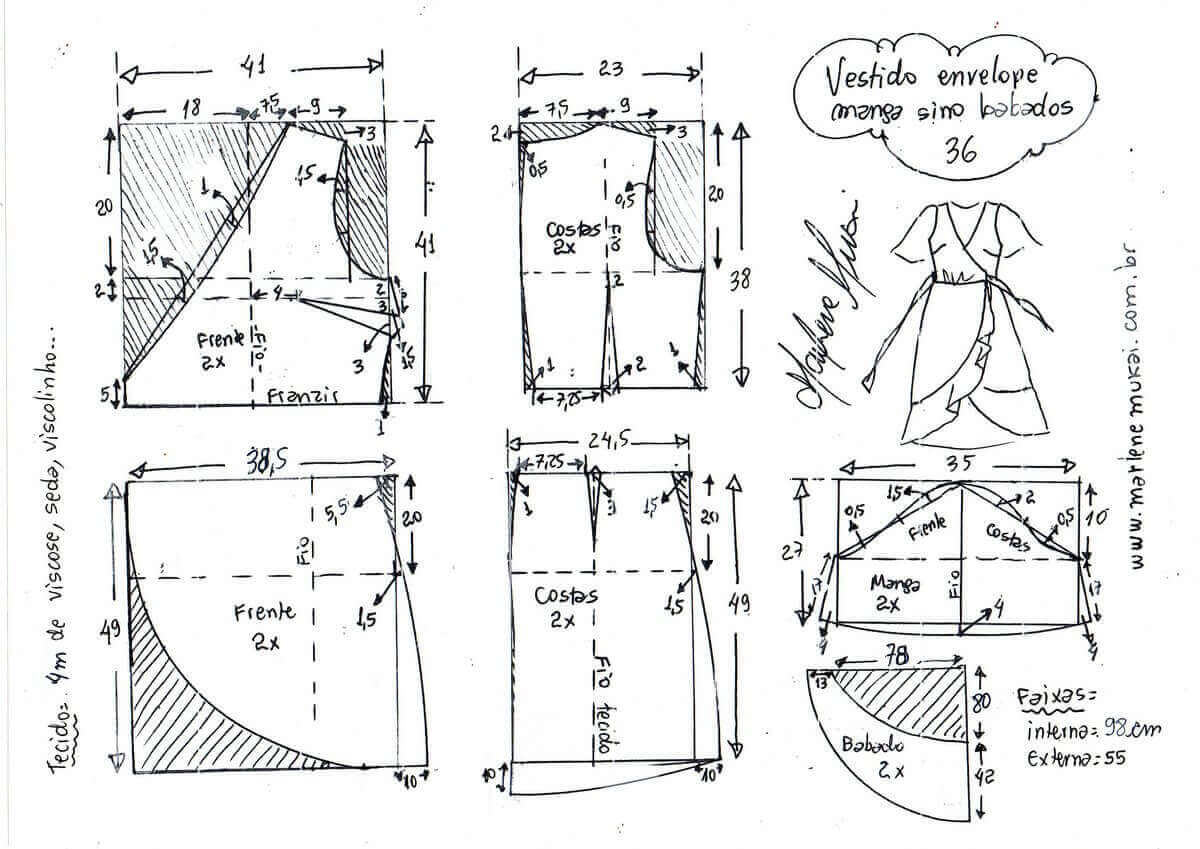 Vestido envelope
manga sino babados
36
www.marlene mukai.com.br
Tecido= 4m de viscose, seda, viscolinho...
41
18
7,5
9
3
1,5
1
20
1,5
2
4
2
3
41
Frente
2x
Fio
3
1,5
5
Franzir
1
23
7,5
9
2
3
0,5
0,5
20
Costas
2x
Fio
38
2
1
2
1
7,25
38,5
5,5
20
Fio
49
Frente
2x
1,5
10
24,5
7,25
1
3
1,5
20
Costas
2x
1,5
49
Fio tecido
10
10
35
1,5
2
0,5
0,5
10
Frente
Costas
27
17
Manga
2x
Fio
4
17
4
4
78
13
80
Babado
2x
42
Faixas=
interna=98cm
Externa=55